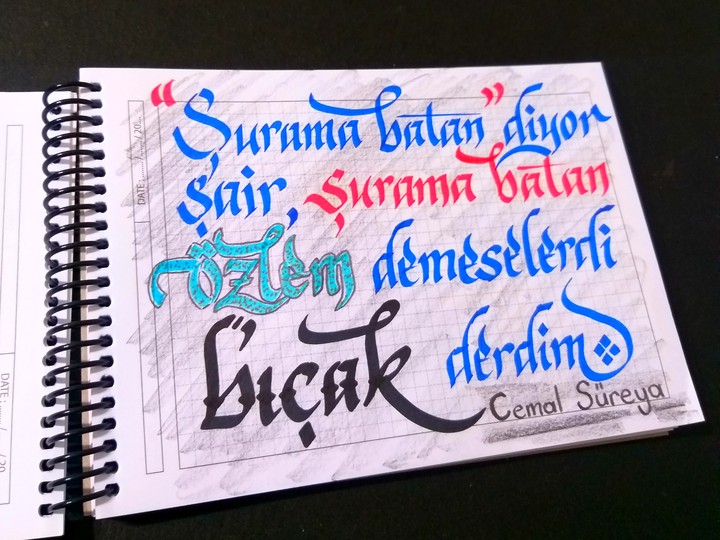 “Şurama batan” diyor
şair, şurama batan
özlem demeselerdi
bıçak derdim
Cemal Süreya
DATE: ....../....../20...
DATE: ....../....../20